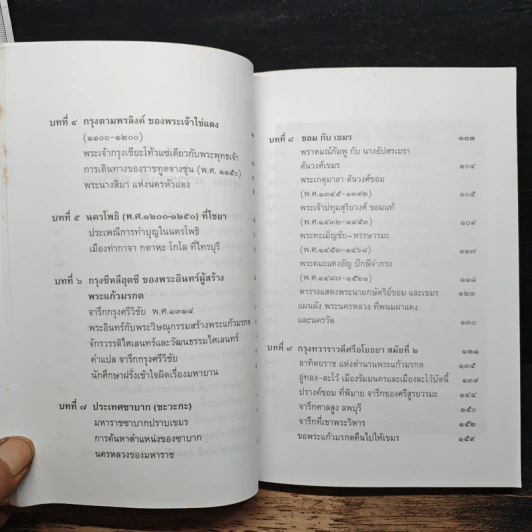 บทที่ ๔ กรุงตามพรลิงค์ ของพระเจ้าไข่แดง
(๑๑๐๐-๑๒๐๐)
พระเจ้ากรุงเซียะโท้วแซ่เดียวกับพระพุทธเจ้า
การเดินทางของราชทูตจางชุ่น (พ.ศ. ๑๑๕๐)
พระนางสีมา แห่งนครหัวแดง
บทที่ ๕ นครโพธิ (พ.ศ.๑๒๐๐-๑๒๕๐) ที่ไชยา
ประเพณีการทำบุญในนครโพธิ
เมืองท่ากาจา กตาหะ โกโล ที่ไทรบุรี
บทที่ ๖ กรุงชีหลีฮุดซี ของพระอินทร์ผู้สร้าง
พระแก้วมรกต
จารึกกรุงศรีวิชัย พ.ศ.๑๓๑๘
พระอินทร์กับพระวิษณุกรรมสร้างพระแก้วมรกต
จักรวรรดิไศเลนทร์และวัฒนธรรมไศเลนทร์
คำแปล จารึกกรุงศรีวิชัย
นักศึกษาฝรั่งเข้าใจผิดเรื่องมหายาน
บทที่ ๗ ประเทศซาบาก (ชะวะกะ)
มหาราชซาบากปราบเขมร
การค้นหาตำแหน่งของซาบาก
นครหลวงของมหาราช
บทที่ ๘ ขอม กับ เขมร ๑๐๓
พราหมณ์กัมพู กับ นางอัปสรเมรา
ต้นวงศ์เขมร ๑๐๔
พระเกตุมาลา ต้นวงศ์ขอม
(พ.ศ.๑๓๔๕-๑๓๙๒) ๑๐๕
พระเจ้าปทุมสุริยวงศ์ ขอมแท้
(๑๔๓๒-๑๔๕๓) ๑๐๙
พระทะเมิญชัย-หรรษวรมะ
(๑๔๕๓-๑๔๖๘) ๑๑๗
พระตมะแดงอัญ ปักษีจำกรง
(พ.ศ.๑๔๘๗-๑๕๒๑) ๑๑๘
ตารางแสดงพระนามกษัตริย์ขอม และเขมร ๑๒๓
แผนผัง พระนครหลวง ที่พนมผาแดง
และนครวัด ๑๓๐
บทที่ ๙ กรุงทวาราวดีศรีอโยธยา สมัยที่ ๒ ๑๓๑
อาทิตยราช แห่งตำนานพระแก้วมรกต ๑๓๕
อู่ทอง-ละโว้ เมืองรัมมนครและเมืองละโว้บัดนี้ ๑๓๙
ปรางค์ขอม ที่พิมาย จารึกของศรีสูรยวรมะ ๑๔๔
จารึกศาลสูง ลพบุรี ๑๕๐
จารึกที่เขาพระวิหาร ๑๕๒
ขอพระแก้วมรกตคืนไปให้เขมร ๑๕๙